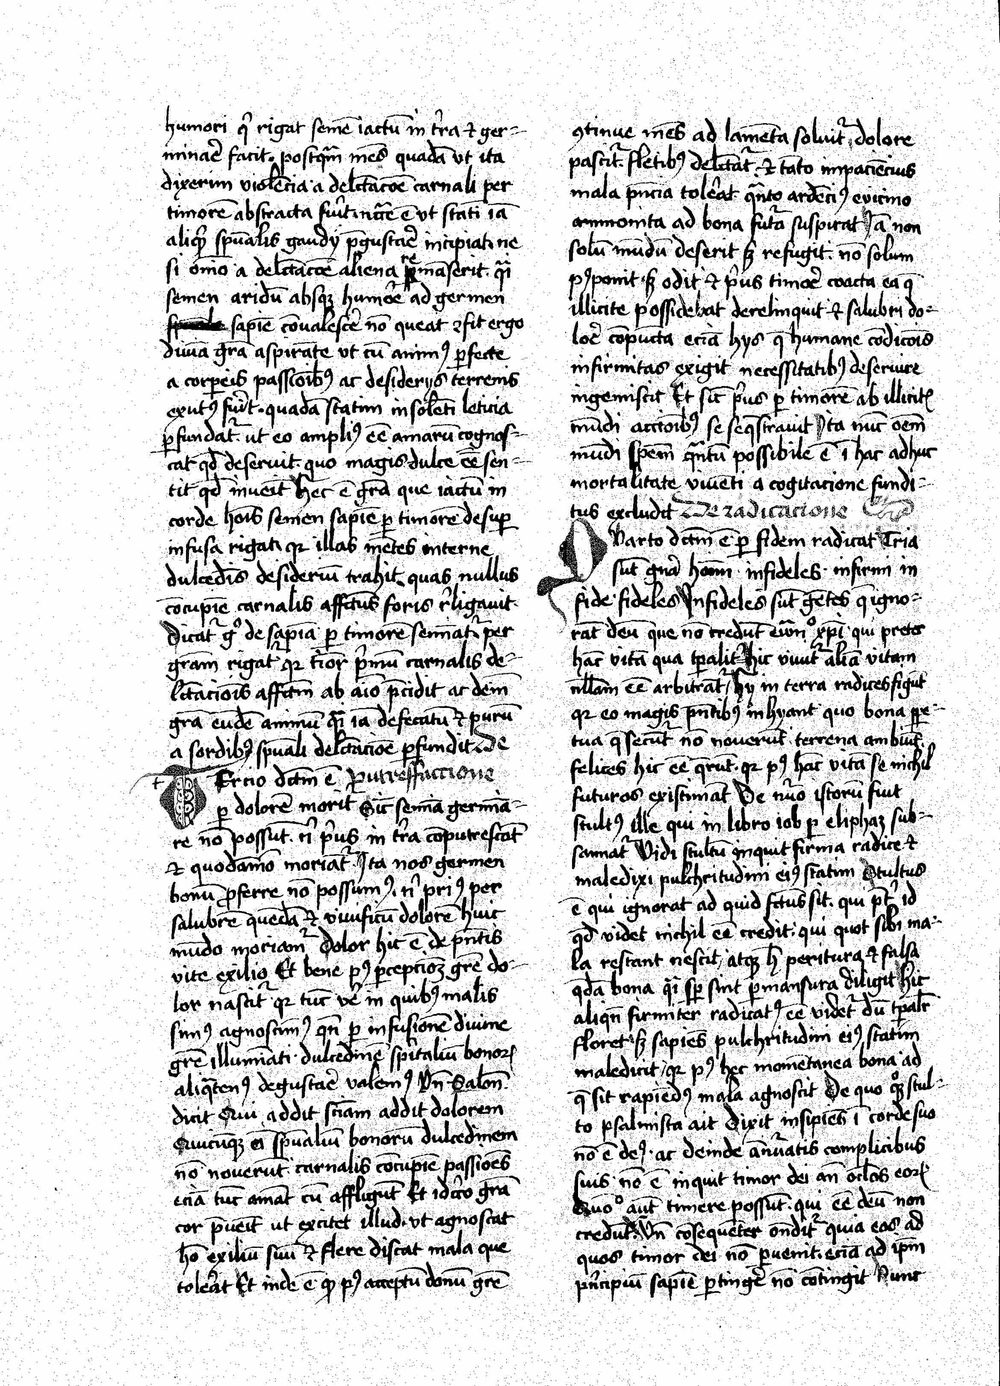 humori q̇ rigat semē iactū in t̄ra ⁊ ger=
minar̄ facit. postq̄ȝ mēs quadā vt ita
dixerim violēcia a delc̄tacōe carnali per
timorē abstracta fūit. nc̄āe ē vt stati iā
aliq̇ sp̄ualis gaudȳ p̄gustar̄ incipiat. ne
si oīno a delc̄tacōe aliena ꝑmāserit. q̄i
semen aridū absqȝ humōre ad germen
sapīe cōualescēr nō queat ⁊ fit ergo
diuīa gr̄a aspirāte vt cū anim⁹ ꝑfecte
a corporeis passiōib⁹ ac desiderijs terrenis
exut⁹ fūit. quadā statim insolēti leticia
ꝑfundat᷑ ut eo ampli⁹ eē amarū cognos=
cat qd̄ deseruit. quo magis dulce eē sen=
tit qd̄ īueīt hec ē gr̄a que iactū in
corde hoīs semen sapīe ꝑ timorē desuꝑ
infusa rigat. qꝛ illas mētes interne
dulcedīs desideriū trahit. quas nullus
cōcupīe carnalis affc̄tus foris r̄ligauit.
dicat᷑ gͦ de sapīa ꝑ timore semīat᷑ per
gram̄ rigat᷑ qꝛ tīor p̄mū carnalis de=
lc̄taciois affc̄tm ab aīo p̄cidit ac deīn
gr̄a eudē animū q̄i iā defecatū ⁊ purū
a sordib⁹ sp̄uali delc̄tacioē ꝑfundit De
TErcio dc̄m ē Putreffaccione
ꝑ dolorē morit᷑ Sic semīa germīa=
re nō possunt. n̄ p̄us in t̄ra cōputrescāt
⁊ quodamō moriāt᷑. Ita nos germen
bonū ꝓferre nō possum⁹. n̄ pri⁹ per
salubrē quedā ⁊ viuificū dolorē huic
mūdo moriam᷑ Dolor hic ē de p̄ntis
vite exilio Et bene p⁹ ꝑcepcioȝ gr̄e do=
lor nascit᷑ qꝛ tūc vē in quib⁹ malis
sum⁹ agnoscim⁹ qn̄ ꝑ infusionē diuine
gr̄e illumīati dulcedinē sp̄italiū bonoꝝ
aliq̄ten⁹ degustar̄ valem⁹ Vn̄ Salom̄.
dicit Qui addit sciam̄ addit dolorem
Quicūqȝ ei sp̄ualiū bonorū dulcedinem
nō nouerūt. carnalis cōcupīe passiōes
eciā tūc amāt cū affligūt Et idcīrco gr̄a
cor p̄ueīt ut excitet illud. vt agnoscat
hō exiliū suū ⁊ flere discat mala que
tolērat Et inde ē ꝙ p⁹ acceptū donū gr̄e
ꝯtinue mēs ad lamēta soluit᷑ dolore
pascit᷑. fletib⁹ delc̄tat᷑. ⁊ tāto impaciēcius
mala p̄ncia tolērat q̄nto ardēci⁹ e vicino
ammonita ad bona futā suspirat Iā non
solū mūdū deserit sȝ refugit. nō solum
p⁹ponit sȝ odit ⁊ p̄us timōre coacta ea q̄
illicite possidebat derelinquit ⁊ salubri do=
lōre cōpūcta eciā hys q̄ humane cōdicōis
infirmitas exigit necessitatib⁹ deseruire
ingemiscit Et sic p̄us ꝑ timorē ab illicitꝭ
mūdi accioīb⁹ se seq̄strauit Ita nūc oēm
mūdi spem̄ q̄ntū possibile ē ī hac adhuc
mortalitate viuēti a cogitacione fundi=
tus excludit De radicacione
QVarto dc̄m ē ꝑ fidem radicat᷑ Tria
sūt gn̄a hoīm. infideles. infirmi in
fide. fideles Infideles sūt gētes q̄ igno=
rāt deū que nō credūt euāgͦ xp̄i qui preter
hāc vitā qua tp̄alit᷑ hic viuūt᷑ aliā vitam
nllām eē arbitrāt᷑ hy in terra radices figūt
qꝛ eo magis p̄ntib⁹ inhyant quo bona ꝑpe=
tua q̄ secūt᷑ nō nouerūt. terrena ambiūt.
felices hic eē qrūt. qꝛ p⁹ hāc vitā se nichil
futuros existimāt De nūo istorū fuit
stult⁹ ille qui in libro iob ꝑ eliphaȝ sub=
sannat᷑ Vidi stultū inquit firma radice ⁊
maledixi pulchritudini ei⁹ statim Stultus
ē qui ignorat ad quid fctūs sit. qui p̄t᷑ id
qd̄ videt nichil eē credit. qui quot sibi ma=
la restant nescit. atqȝ h̄ peritura ⁊ falsa
q̄da bona q̄i sꝑ sint ꝑmansura diligit Hic
aliqn̄ firmiter radicat⁹ eē videt᷑ dū tp̄alr̄
floret sȝ sapiēs pulchritudini ei⁹ statim
maledicit. qꝛ p⁹ hec momētanea bona ad
q̄ sit rapiēd⁹ mala agnoscit De quo qȝ stul=
to psalmista ait Dixit insipiēs ī corde suo
nō ē de⁹. ac deinde annūatis complicibus
suis nō ē inquit timor dei an̄ oclōs eoꝝ
Quōo aūt timere possūt. qui eē deū non
credūt. Vn̄ cōsequēter ondit᷑ quia eos ad
quos timor dei nō ꝑuenit. eciā ad ip̄m
p̄ncipiū sapīe ꝑtingēr nō cōtingit Nunc